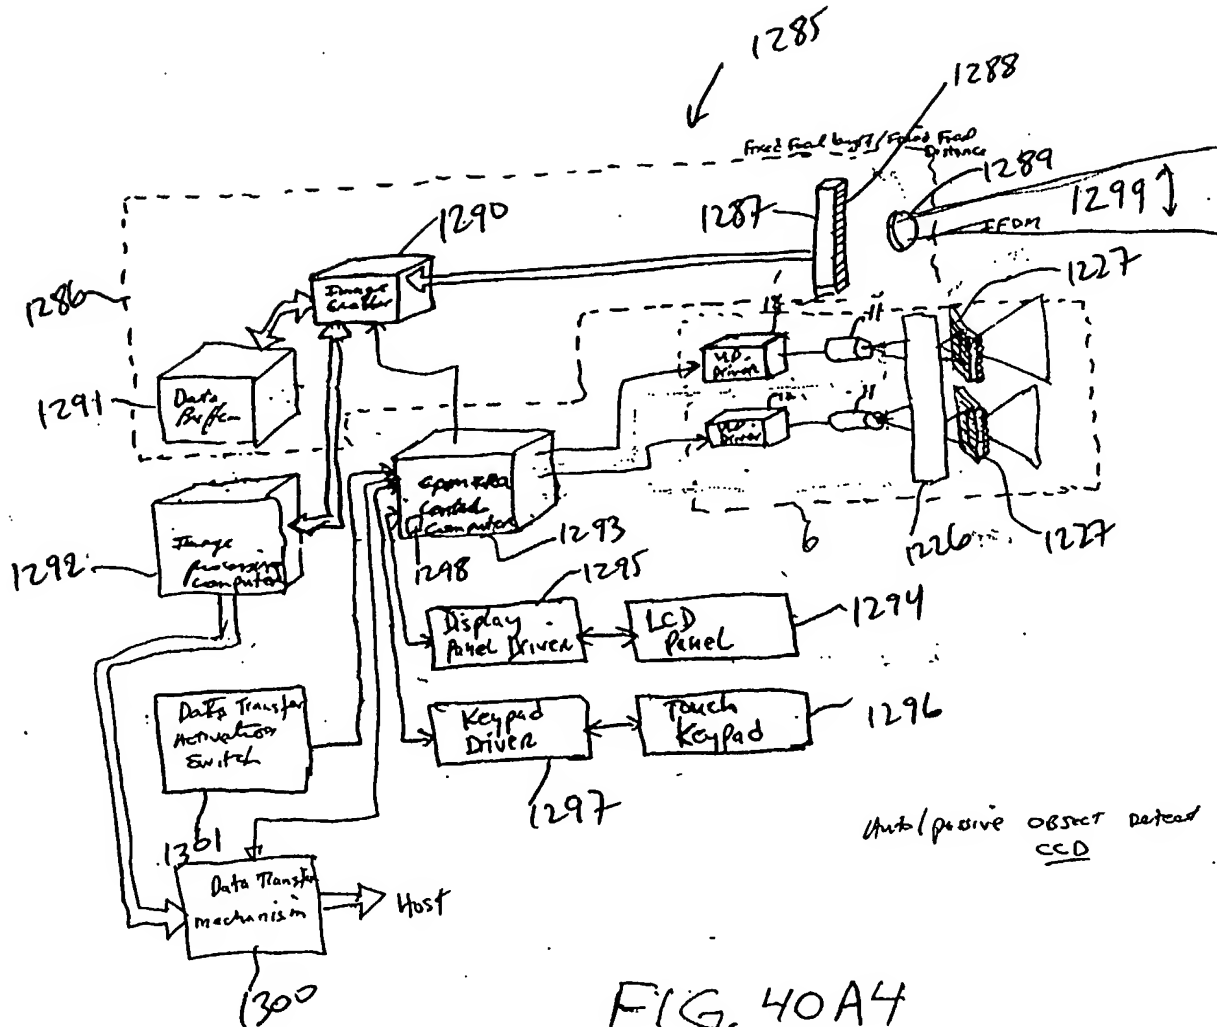 1285
1288
Fixed Focal Length / Fixed Focal
Distance
1289
1287
1299
IFDM
1290
1286
Image
Grabber
1227
18
11
VLD
Driver
1291
Data
Buffer
18
11
VLD
Driver
Camera
Control
Computer
1293
6
1226
1227
1292
Image
processing
Computer
1298
1295
Display
Panel Driver
LCD
Panel
1294
Data Transfer
Activation
Switch
Keypad
Driver
Touch
Keypad
1296
1297
1301
Auto/passive OBJECT Detect
CCD
Data Transfer
mechanism
Host
1300
FIG. 40A4